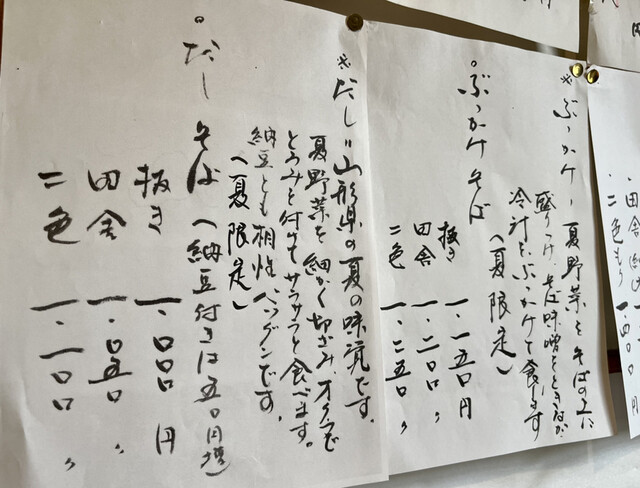 ※ぶっかけ＝夏野菜をそばの上に
盛りつけ、そば味噌をときながら
冷汁をぶっかけて食します
（夏限定）
。ぶっかけそば
抜き 一.一五〇円
田舎 一.二〇〇〃
二色 一.二五〇〃
※だし＝山形県の夏の味覚です。
夏野菜を細かく切ざみオクラで
とろみを付けてサラサラと食べます。
納豆とも相性バツグンです。
（夏限定）
。だしそば（納豆付きは五〇円増）
抜き 一.〇〇〇円
田舎 一.〇五〇〃
二色 一.一〇〇〃
二色もり 一.〇〇円